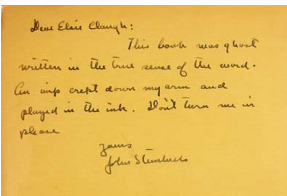 Dear Elsie Clough:
This book was ghost
written in the true sense of the word.
An imp crept down my arm and
played in the ink. Don't turn me in
please
yours
John Steinbeck